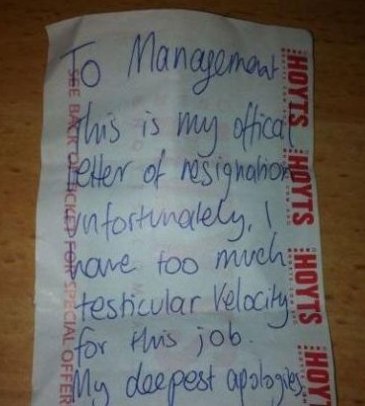 To Management
This is my offical
letter of resignation
Unfortunately, I
have too much
testicular Velocity
for this job.
My deepest apologies
SEE BACK OF TICKET FOR SPECIAL OFFER
HOYTS
HOYTS
HOYTS
HOY